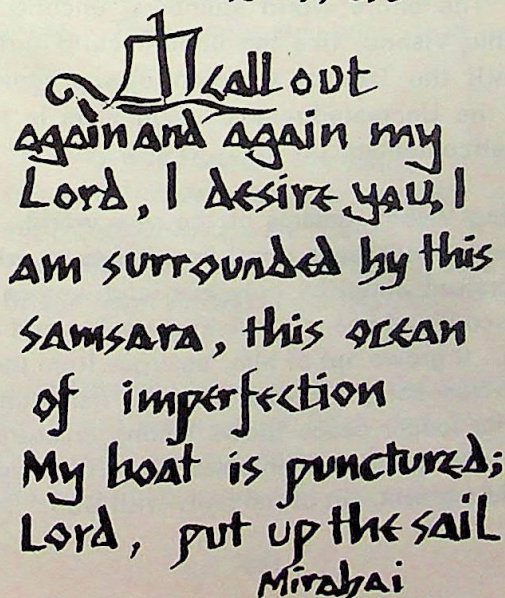 I call out
again and again my
Lord, I desire you, I
am surrounded by this
samsara, this ocean
of imperfection
My boat is punctured;
Lord, put up the sail
Mirabai